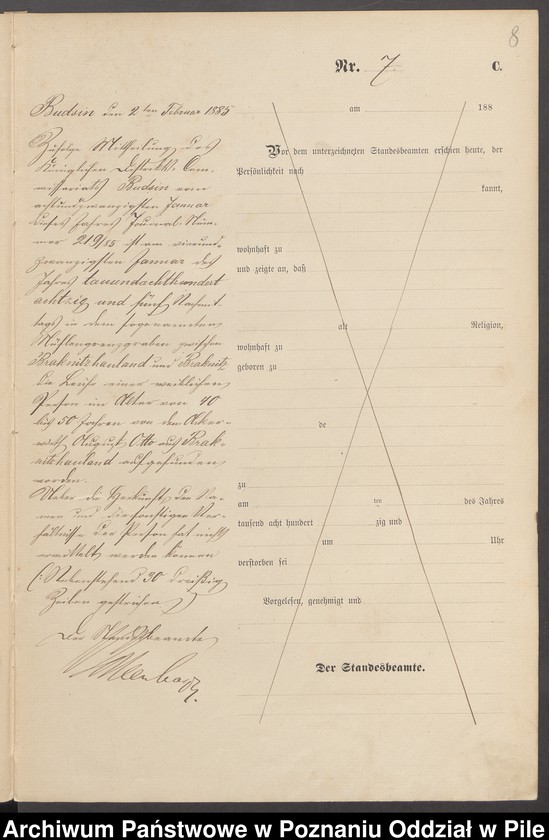 8
Nr. 7 C.
Budsin den 2ten Februar 1885
Zufolge Mittheilung des
Königlichen Distrikts-Com-
missariats Budsin vom
achtundzwanzigsten Januar
dieses Jahres Journal-Num-
mer 219/85 ist am vierund-
zwanzigsten Januar des
Jahres tausendachthundert
achtzig und fünf Nachmit-
tags in dem sogenannten
Mühlengrenzgraben zwischen
Braknitzhauland und Braknitz
die Leiche einer weiblichen
Person im Alter von 40
bis 50 Jahren von dem Acker-
wirth August Otto aus Brak-
nitzhauland aufgefunden
worden.
Ueber die Herkunft, den Na-
men und die sonstigen Ver-
hältnisse der Person hat nichts
ermittelt werden können
(: Nebenstehend 30 dreißig
Zeilen gestrichen :)
Der Standesbeamte
am 188
Vor dem unterzeichneten Standesbeamten erschien heute, der
Persönlichkeit nach
kannt,
wohnhaft zu
und zeigte an, daß
alt Religion,
wohnhaft zu
geboren zu
de
zu
am ten des Jahres
tausend acht hundert zig und
um Uhr
verstorben sei
Vorgelesen, genehmigt und
Der Standesbeamte.
Archiwum Państwowe w Poznaniu Oddział w Pile